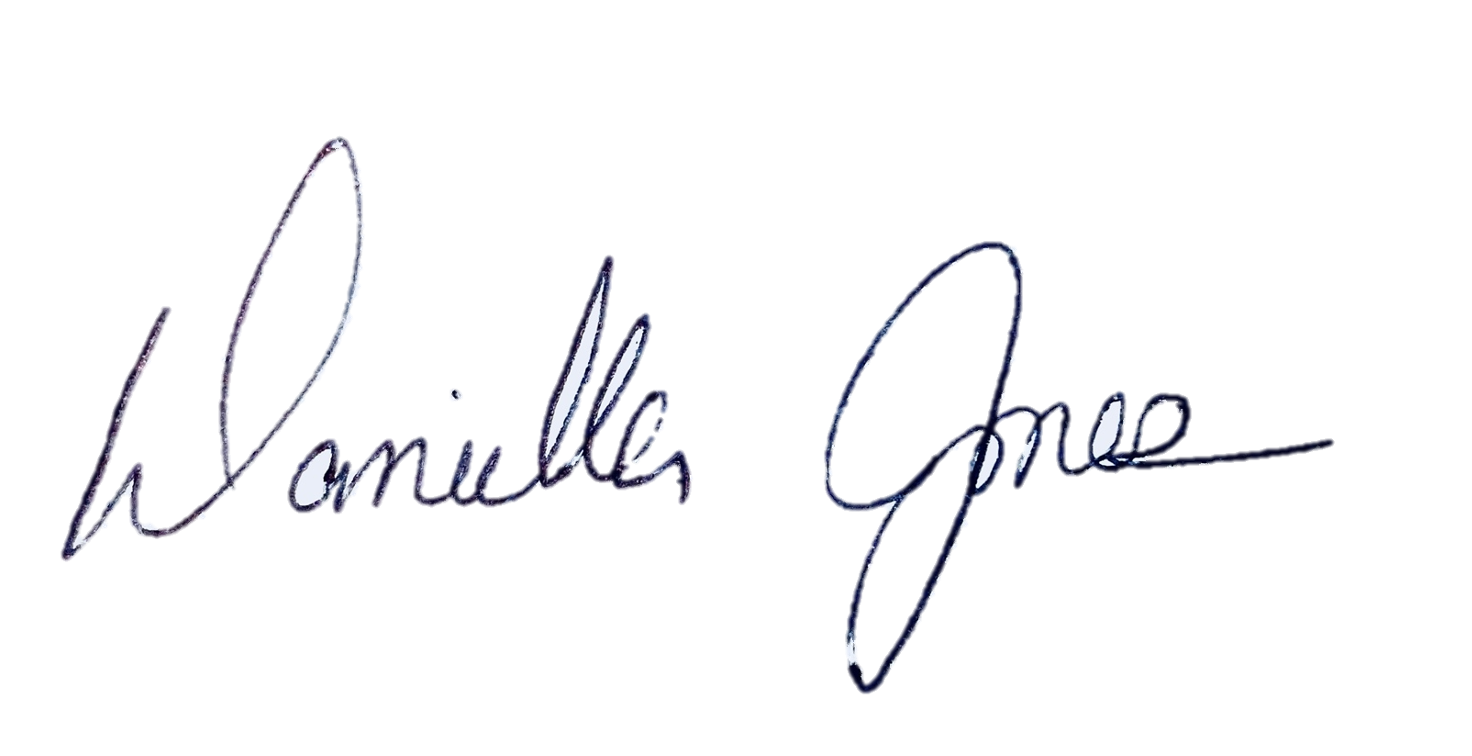 Danielle Jones